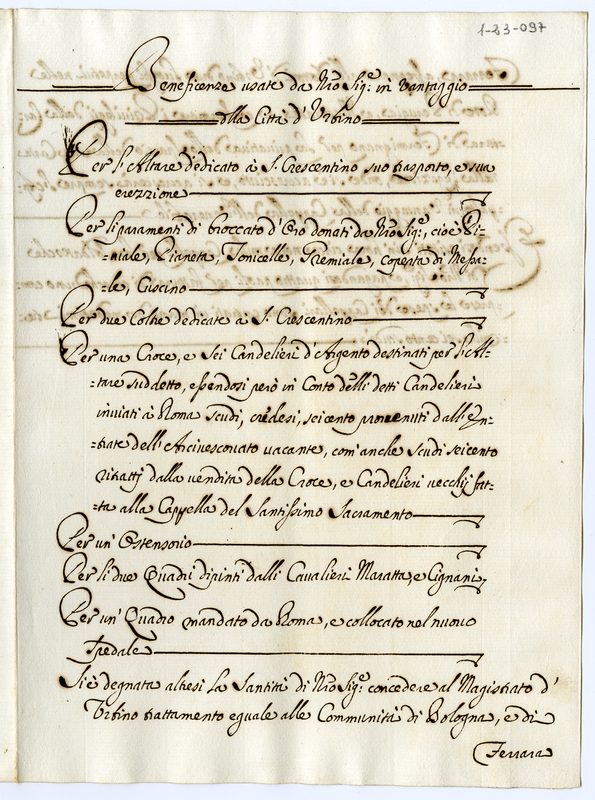 1-23-097
Beneficenze usate da N̄ro Sig.re in vantaggio
alla Città d'Urbino
Per l'Altare dedicato à S. Crescentino suo trasporto, e sua
erezzione
Per li paramenti di broccato d'Oro donati da N̄ro Sig.re, cioè Pi-
-niale, Pianeta, Tonicelle, Gremiale, coperta di Messa-
-le, Cuscino
Per due Coltre dedicate à S. Crescentino
Per una Croce, e sei Candelieri d'Argento destinati per l'Al-
-tare suddetto, essendosi però in Conto delli detti Candelieri
inviati à Roma scudi, credesi, seicento provenuti dall'En-
-trate dell'Arcivescovato vacante, com'anche scudi seicento
ritratti dalla vendita della Croce, e Candelieri vecchij fat-
-ta alla Cappella del Santissimo Sacramento
Per un' Ostensorio
Per li due Quadri dipinti dalli Cavalieri Maratta, e Cignani,
Per un' Quadro mandato da Roma, e collocato nel nuovo
Spedale
Si è degnata altresi la Santità di N̄ro Sig.re concedere al Magistrato d'
Urbino trattamento eguale alle Communità di Bologna, e di
Ferrara